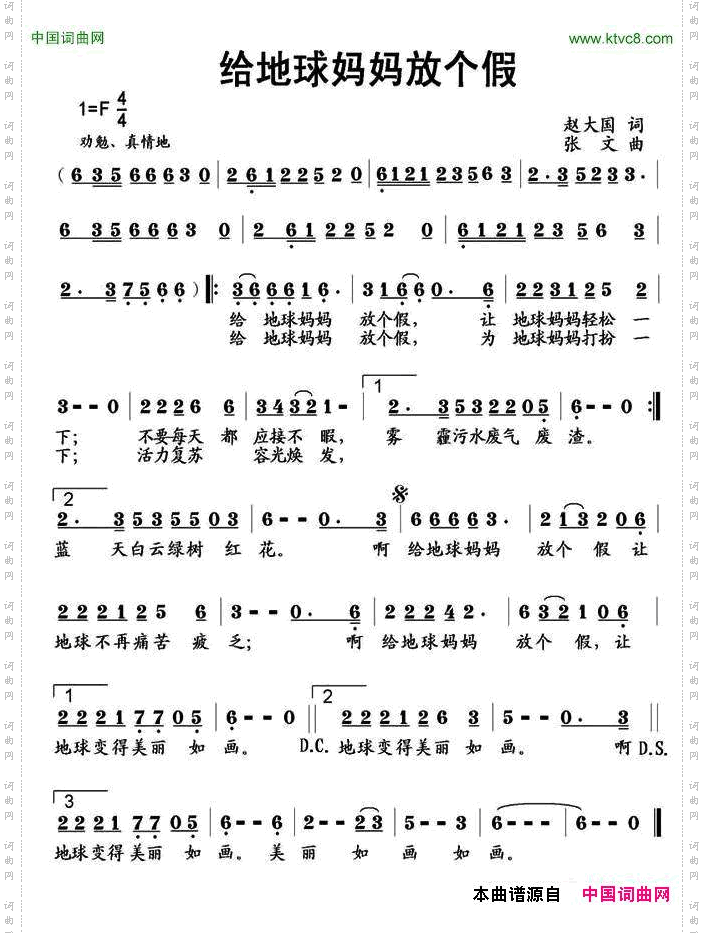 中国词曲网 www.ktvc8.com
给地球妈妈放个假
1=F 4/4
赵大国 词
劝勉、真情地
张 文 曲
( 6 3 5 6 6 6 3 0 | 2 6 1 2 2 5 2 0 | 6 1 2 1 2 3 5 6 3 | 2 · 3 5 2 3 3 · |
6 3 5 6 6 6 3 0 | 2 6 1 2 2 5 2 0 | 6 1 2 1 2 3 5 6 3 |
2 · 3 7 5 6 6 ) ‖: 3 6 6 6 1 6 · | 3 1 6 6 0 · 6 | 2 2 3 1 2 5 2
给 地球妈妈 放个假, 让 地球妈妈轻松一
给 地球妈妈 放个假, 为 地球妈妈打扮一
3 - - 0 | 2 2 2 6 6 | 3 4 3 2 1 - | 1 2 · 3 5 3 2 2 0 5 | 6 - - 0 :‖
下; 不要每天 都 应接不 暇, 雾 霾污水废气 废渣。
下; 活力复苏 容光焕 发,
2
2 · 3 5 3 5 5 0 3 | 6 - - 0 · 3 | 6 6 6 6 3 · | 2 1 3 2 0 6
蓝 天白云绿树 红花。 啊 给地球妈妈 放个 假 让
2 2 2 1 2 5 6 | 3 - - 0 · 6 | 2 2 2 4 2 · | 6 3 2 1 0 6
地球不再痛苦 疲 乏; 啊 给地球妈妈 放个 假,让
1 2
2 2 2 1 7 7 0 5 | 6 - - 0 ‖ 2 2 2 1 2 6 3 | 5 - - 0 · 3 ‖
地球变得美丽 如画。 D.C. 地球变得美丽 如画。 啊 D.S.
3
2 2 2 1 7 7 0 5 | 6 - - 6 | 2 - - 2 3 | 5 - - 3 | 6 - - | 6 - - 0 ‖
地球变得美丽 如画。美 丽 如画 如画。
本曲谱源自 中国词曲网
词曲网